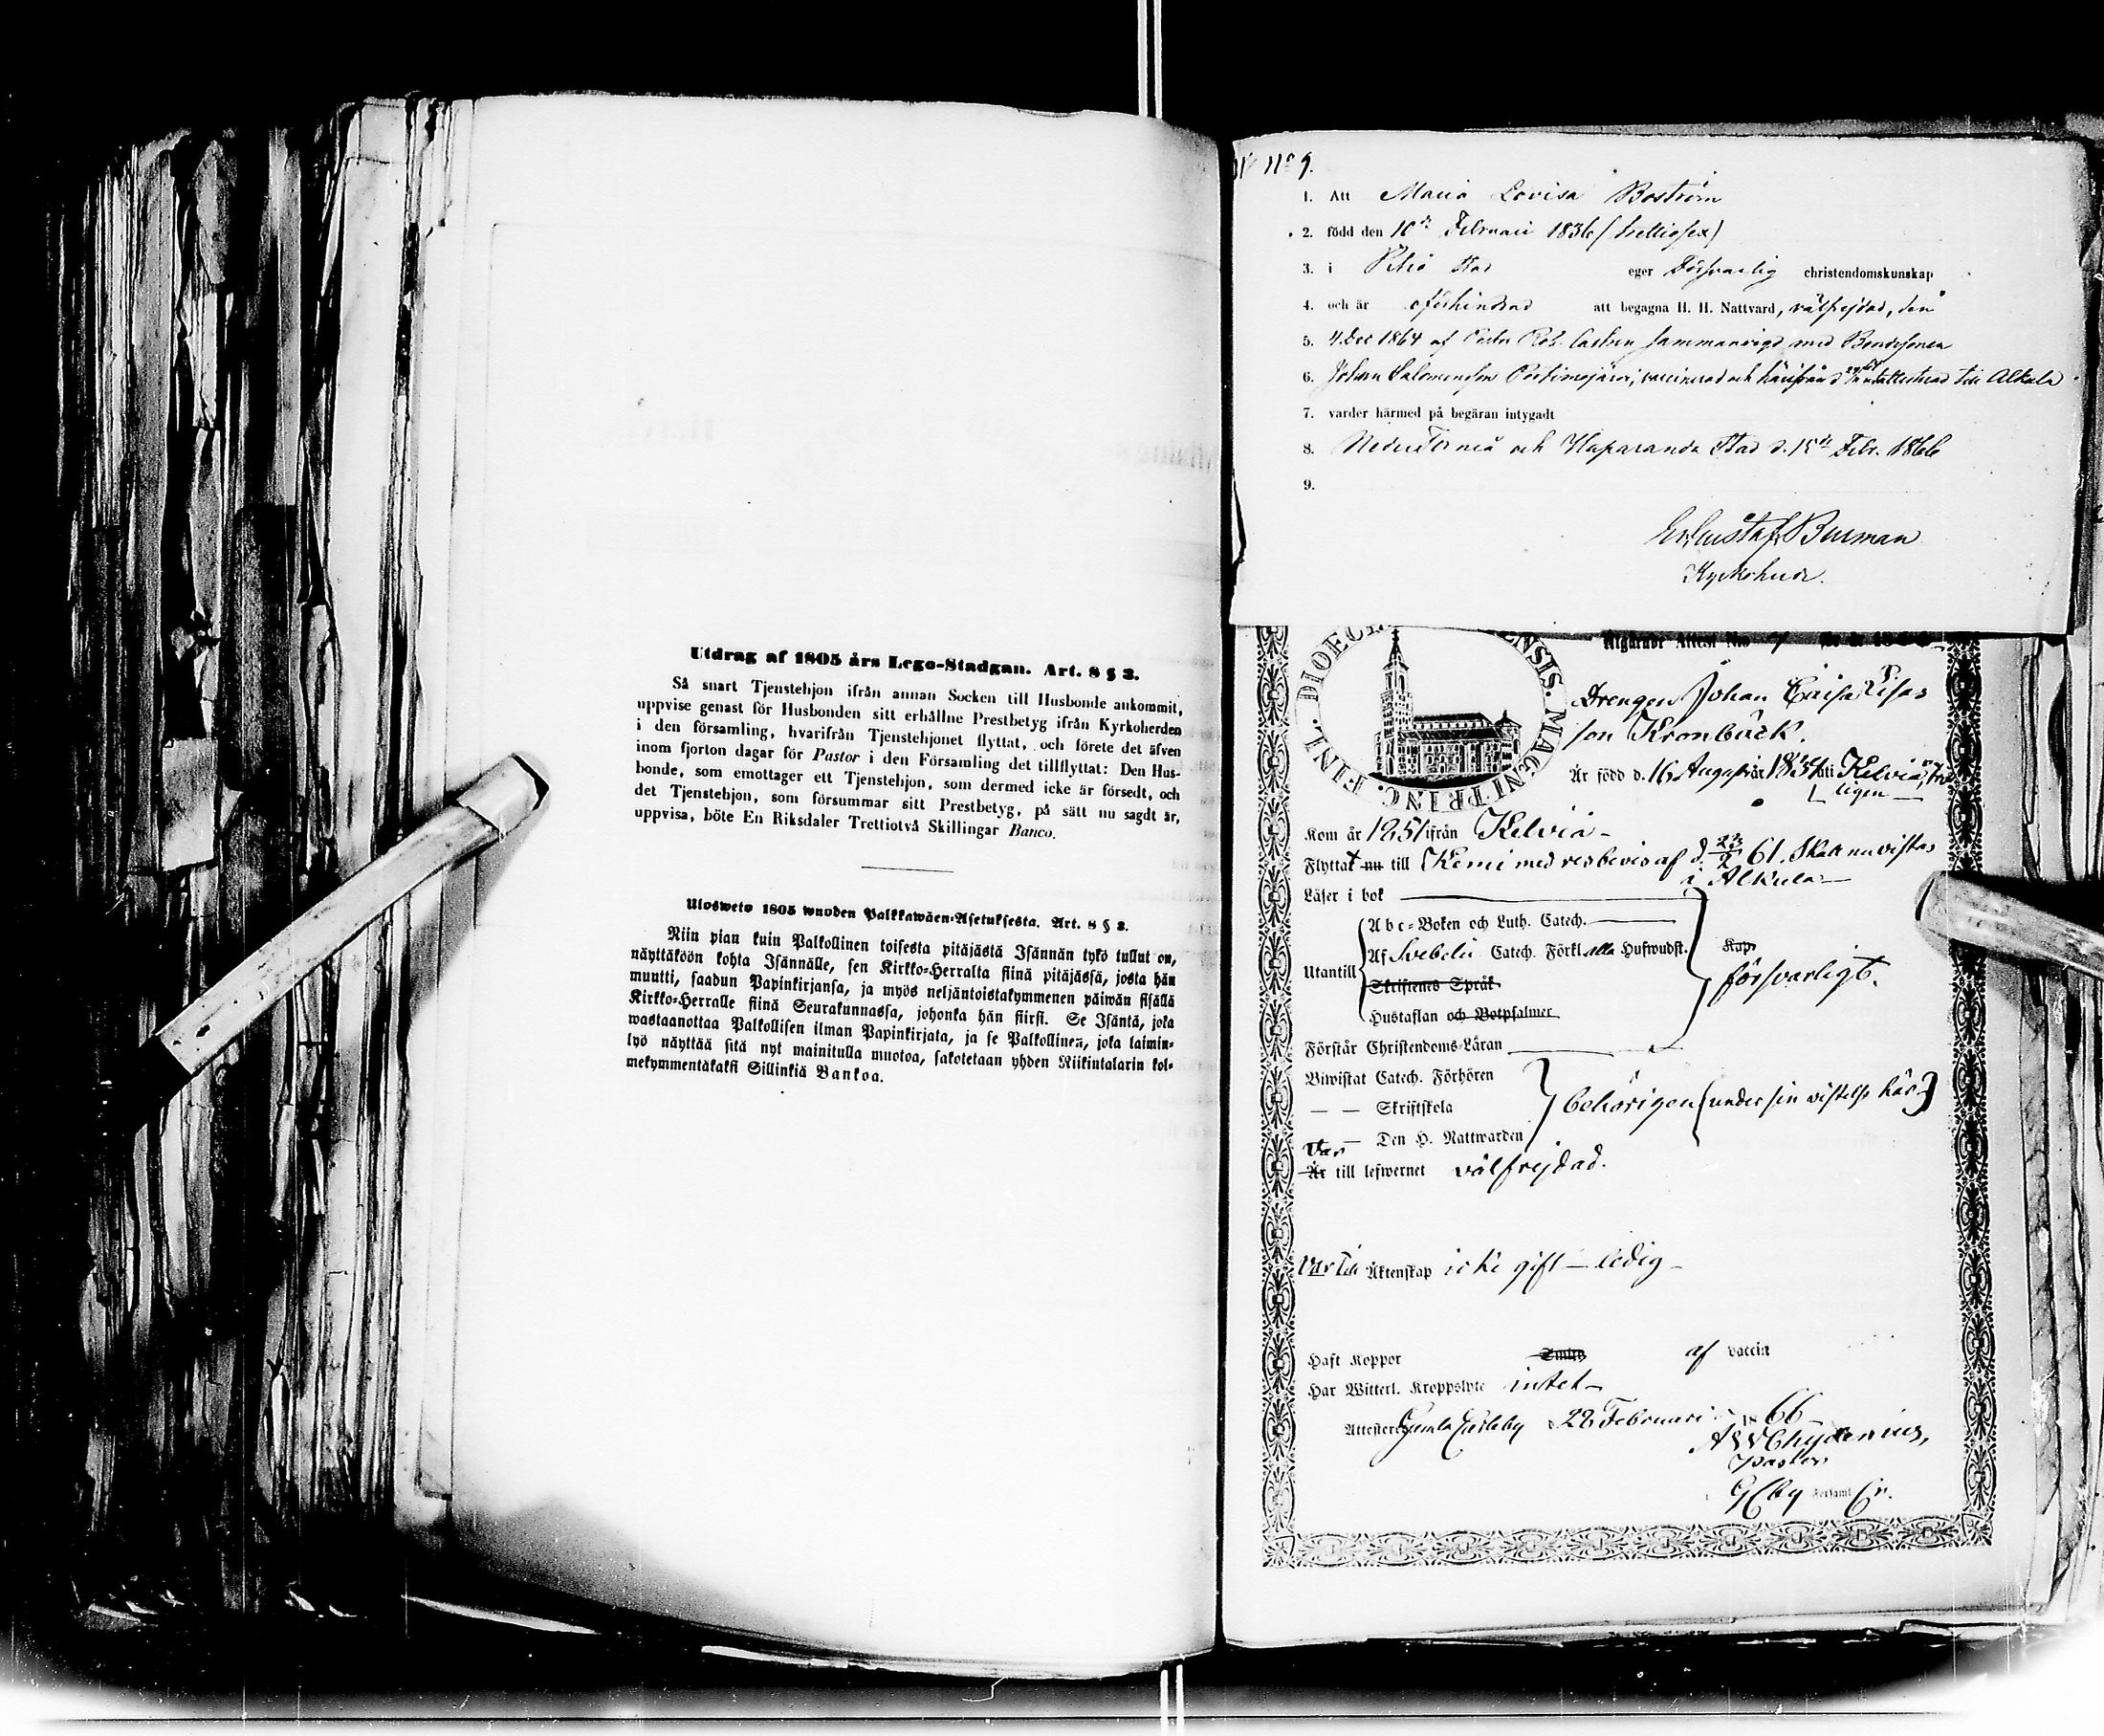 Utdrag af 1805 års Lego-Stadgan. Art. 8 § 3.
Så snart Tjenstehjon ifrån annan Socken till Husbonde ankommit,
uppvise genast för Husbonden sitt erhållne Prestbetyg ifrån Kyrkoherden
i den församling, hvarifrån Tjenstehjonet flyttat, och förete det äfven
inom fjorton dagar för Pastor i den Församling det tillflyttat: Den Hus-
bonde, som emottager ett Tjenstehjon, som dermed icke är försedt, och
det Tjenstehjon, som försummar sitt Prestbetyg, på sätt nu sagdt är,
uppvisa, böte En Riksdaler Trettiotvå Skillingar Banco.
Ulosweto 1805 wuoden Palkkawäen-Asetuksesta. Art. 8 § 3.
Niin pian kuin Palkollinen toisesta pitäjästä Isännän tykö tullut on,
näyttäköön kohta Isännälle, sen Kirkko-Herralta siinä pitäjässä, josta hän
muutti, saadun Papinkirjansa, ja myös neljäntoistakymmenen päiwän sisällä
Kirkko-Herralle siinä Seurakunnassa, johonka hän siirsi. Se Isäntä, joka
wastaanottaa Palkollisen ilman Papinkirjata, ja se Palkollinen, joka laimin-
lyö näyttää sitä nyt mainitulla muotoa, sakotetaan yhden Riikintalarin kol-
mekymmentäkaksi Sillinkiä Bankoa.
No 9.
1. Att Maria Lovisa Boström
2. född den 10de Februari 1836 (trettiosex)
3. i Piteå stad eger försvarlig christendomskunskap
4. och är oförhindrad att begagna H. H. Nattvard, välfrejdad, den
5. 4 Dec 1864 af Castren sammanvigd med Bondesonen
6. Johan Salomonsson Portimojärvi, vaccinerad och härifrån till Alkula
7. varder härmed på begäran intygadt
8. Neder Torneå och Haparanda Stad d. 15de Febr. 1866
9.
Gustaf Burman
Kyrkoherde.
FINL. DIOEC ENSIS. MAGNI PRINC.
Utgående Attest No 7
Drengen Johan Erik
son Kronbäck.
Är född d. 16 Augusti år 1834 i Kelviå,
ligen
Kom år 1851 ifrån Kelviå
Flyttat nu till Kemi med resbevis af d. 23/2 61. Skall nu vistas
i Alkula
Läser i bok
Abc-Boken och Luth. Catech.
Utantill Af Svebelii Catech. Förkl. alla Hufwudst. Kap.
försvarligt.
Skriftenes Språk
Hustaflan och Botpsalmer
Förstår Christendoms-Läran
Biwistat Catech. Förhören
— — Skriftskola behörigen (under sin vistelse här)
— Den H. Nattwarden
Var
Är till lefwernet välfrejdad.
Var Till Äktenskap icke gift — ledig
Haft Koppor af vaccin
Har Witterl. Kroppslyte intet
Attesterar Gamla Carleby d. 22 Februari 1866
AW Chydenius,
Pastor
GCby Församl.